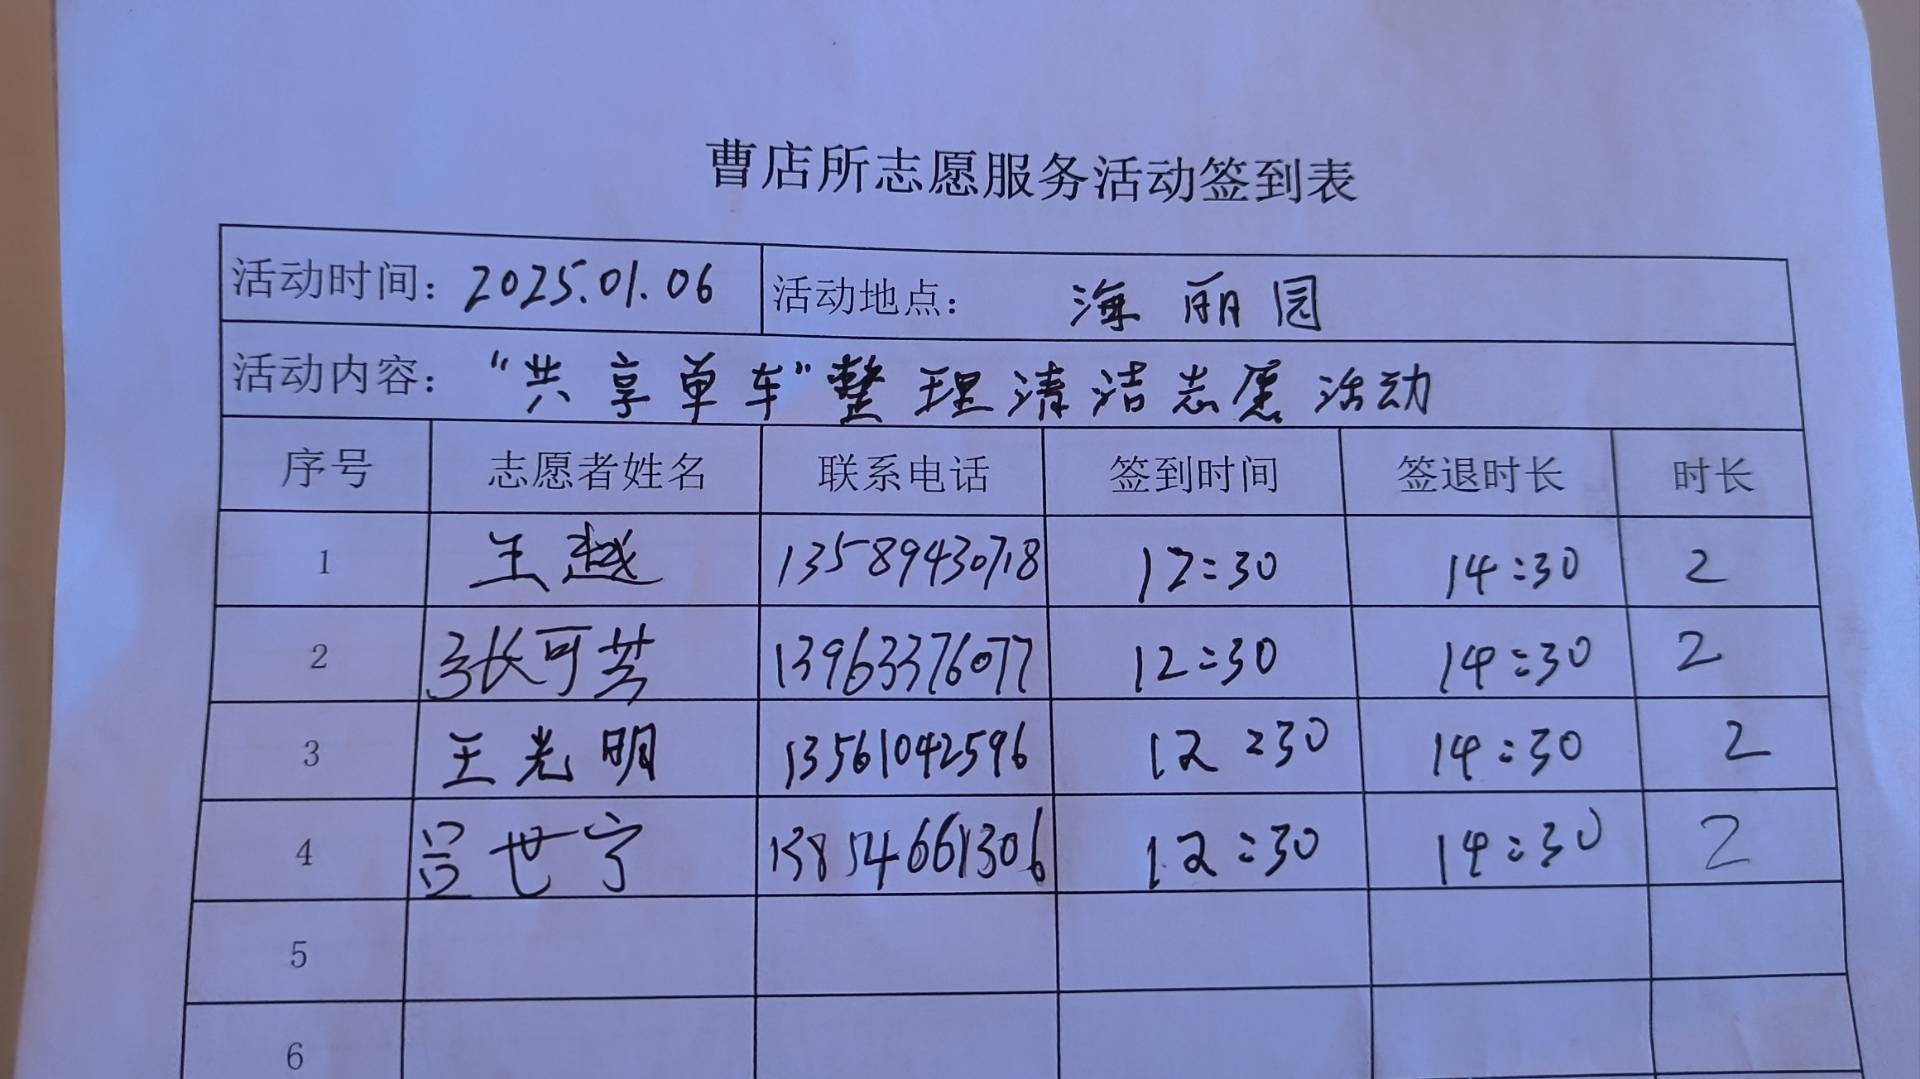 曹店所志愿服务活动签到表
活动时间：2025.01.06 活动地点： 海丽园
活动内容：“共享单车”整理清洁志愿活动
序号 志愿者姓名 联系电话 签到时间 签退时长 时长
1 王越 13589430718 12:30 14:30 2
2 张可芸 13963376077 12:30 14:30 2
3 王光明 13561042596 12:30 14:30 2
4 吕世宁 13854661306 12:30 14:30 2
5
6